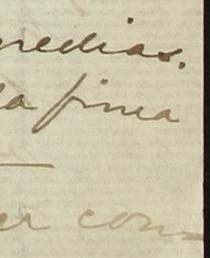 medias.
la finca
er con-